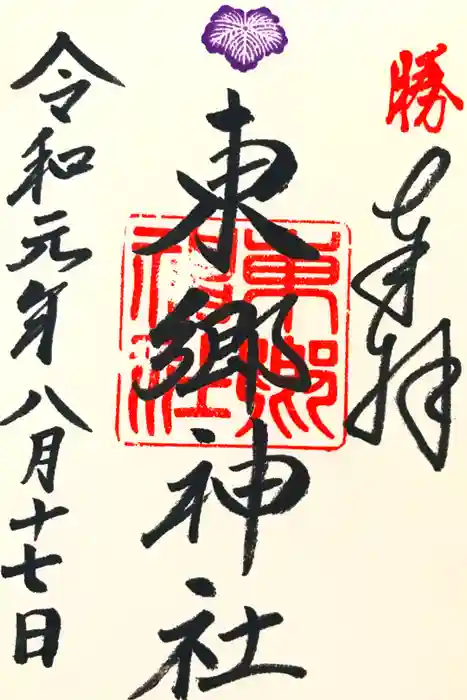 勝
奉拝
東郷神社
東郷神社
令和元年八月十七日